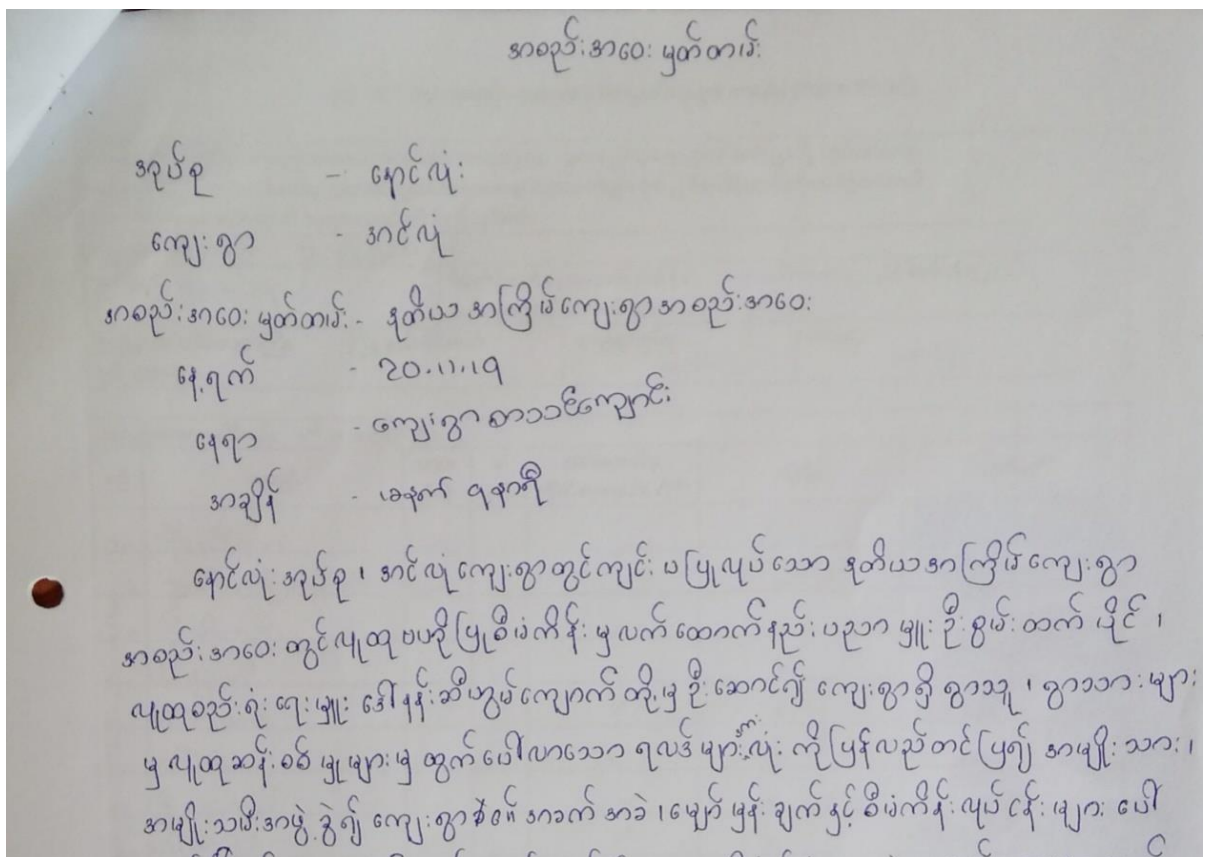 အစည်းအဝေး မှတ်တမ်း
အုပ်စု - နောင်လုံး
ကျေးရွာ - အင်လုံ
အစည်းအဝေး မှတ်တမ်း - ဒုတိယ အကြိမ်ကျေးရွာ အစည်းအဝေး
နေ့ရက် - ၁၀.၁၁.၁၉
နေရာ - ကျေးရွာ စာသင်ကျောင်း
အချိန် - မနက် ၎နာရီ
နောင်လုံးအုပ်စု ၊ အင်လုံကျေးရွာတွင်ကျင်း ပပြုလုပ်သော ဒုတိယအကြိမ်ကျေးရွာ
အစည်းအဝေး တွင်လူထု ဗဟိုပြုစီမံကိန်း မှ လက်ထောက်နည်း ပညာ မှူး ဦးစွမ်းထက် ပိုင် ၊
လူထုစည်းရုံးရေးမှူး ဒေါ်နန်းဆီဟွမ်ကျောက် တို့မှ ဦးဆောင်၍ ကျေးရွာရှိ ရွာသူ ၊ ရွာသားများ
မှ လူထုဆန်းစစ် မှု များမှ ထွက်ပေါ်လာသော ရလဒ် များအားလုံး ကိုပြန်လည်တင်ပြ၍ အမျိုးသား ၊
အမျိုးသမီးအဖွဲ့ခွဲ၍ ကျေးရွာ၏ အခက်အခဲ ၊ မျှော်မှန်းချက်နှင့် စီမံကိန်း လုပ်ငန်းများ ပေါ်